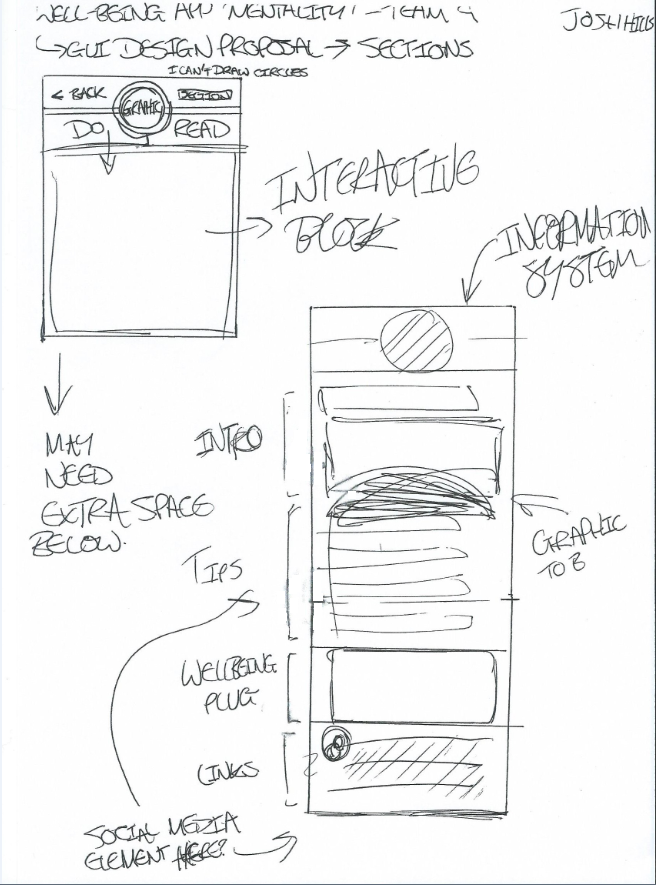 WELL-BEING APP 'MENTALITY' - TEAM 4
JOSH HILLS
↳GUI DESIGN PROPOSAL → SECTIONS
I CAN'T DRAW CIRCLES
< BACK
GRAPHIC
SECTION
DO
READ
INTERACTIVE
BLOCK
INFORMATION
SYSTEM
MAY
NEED
EXTRA SPACE
BELOW.
INTRO
GRAPHIC
TO B
TIPS
WELLBEING
PLUG
LINKS
SOCIAL MEDIA
ELEMENT HERE?